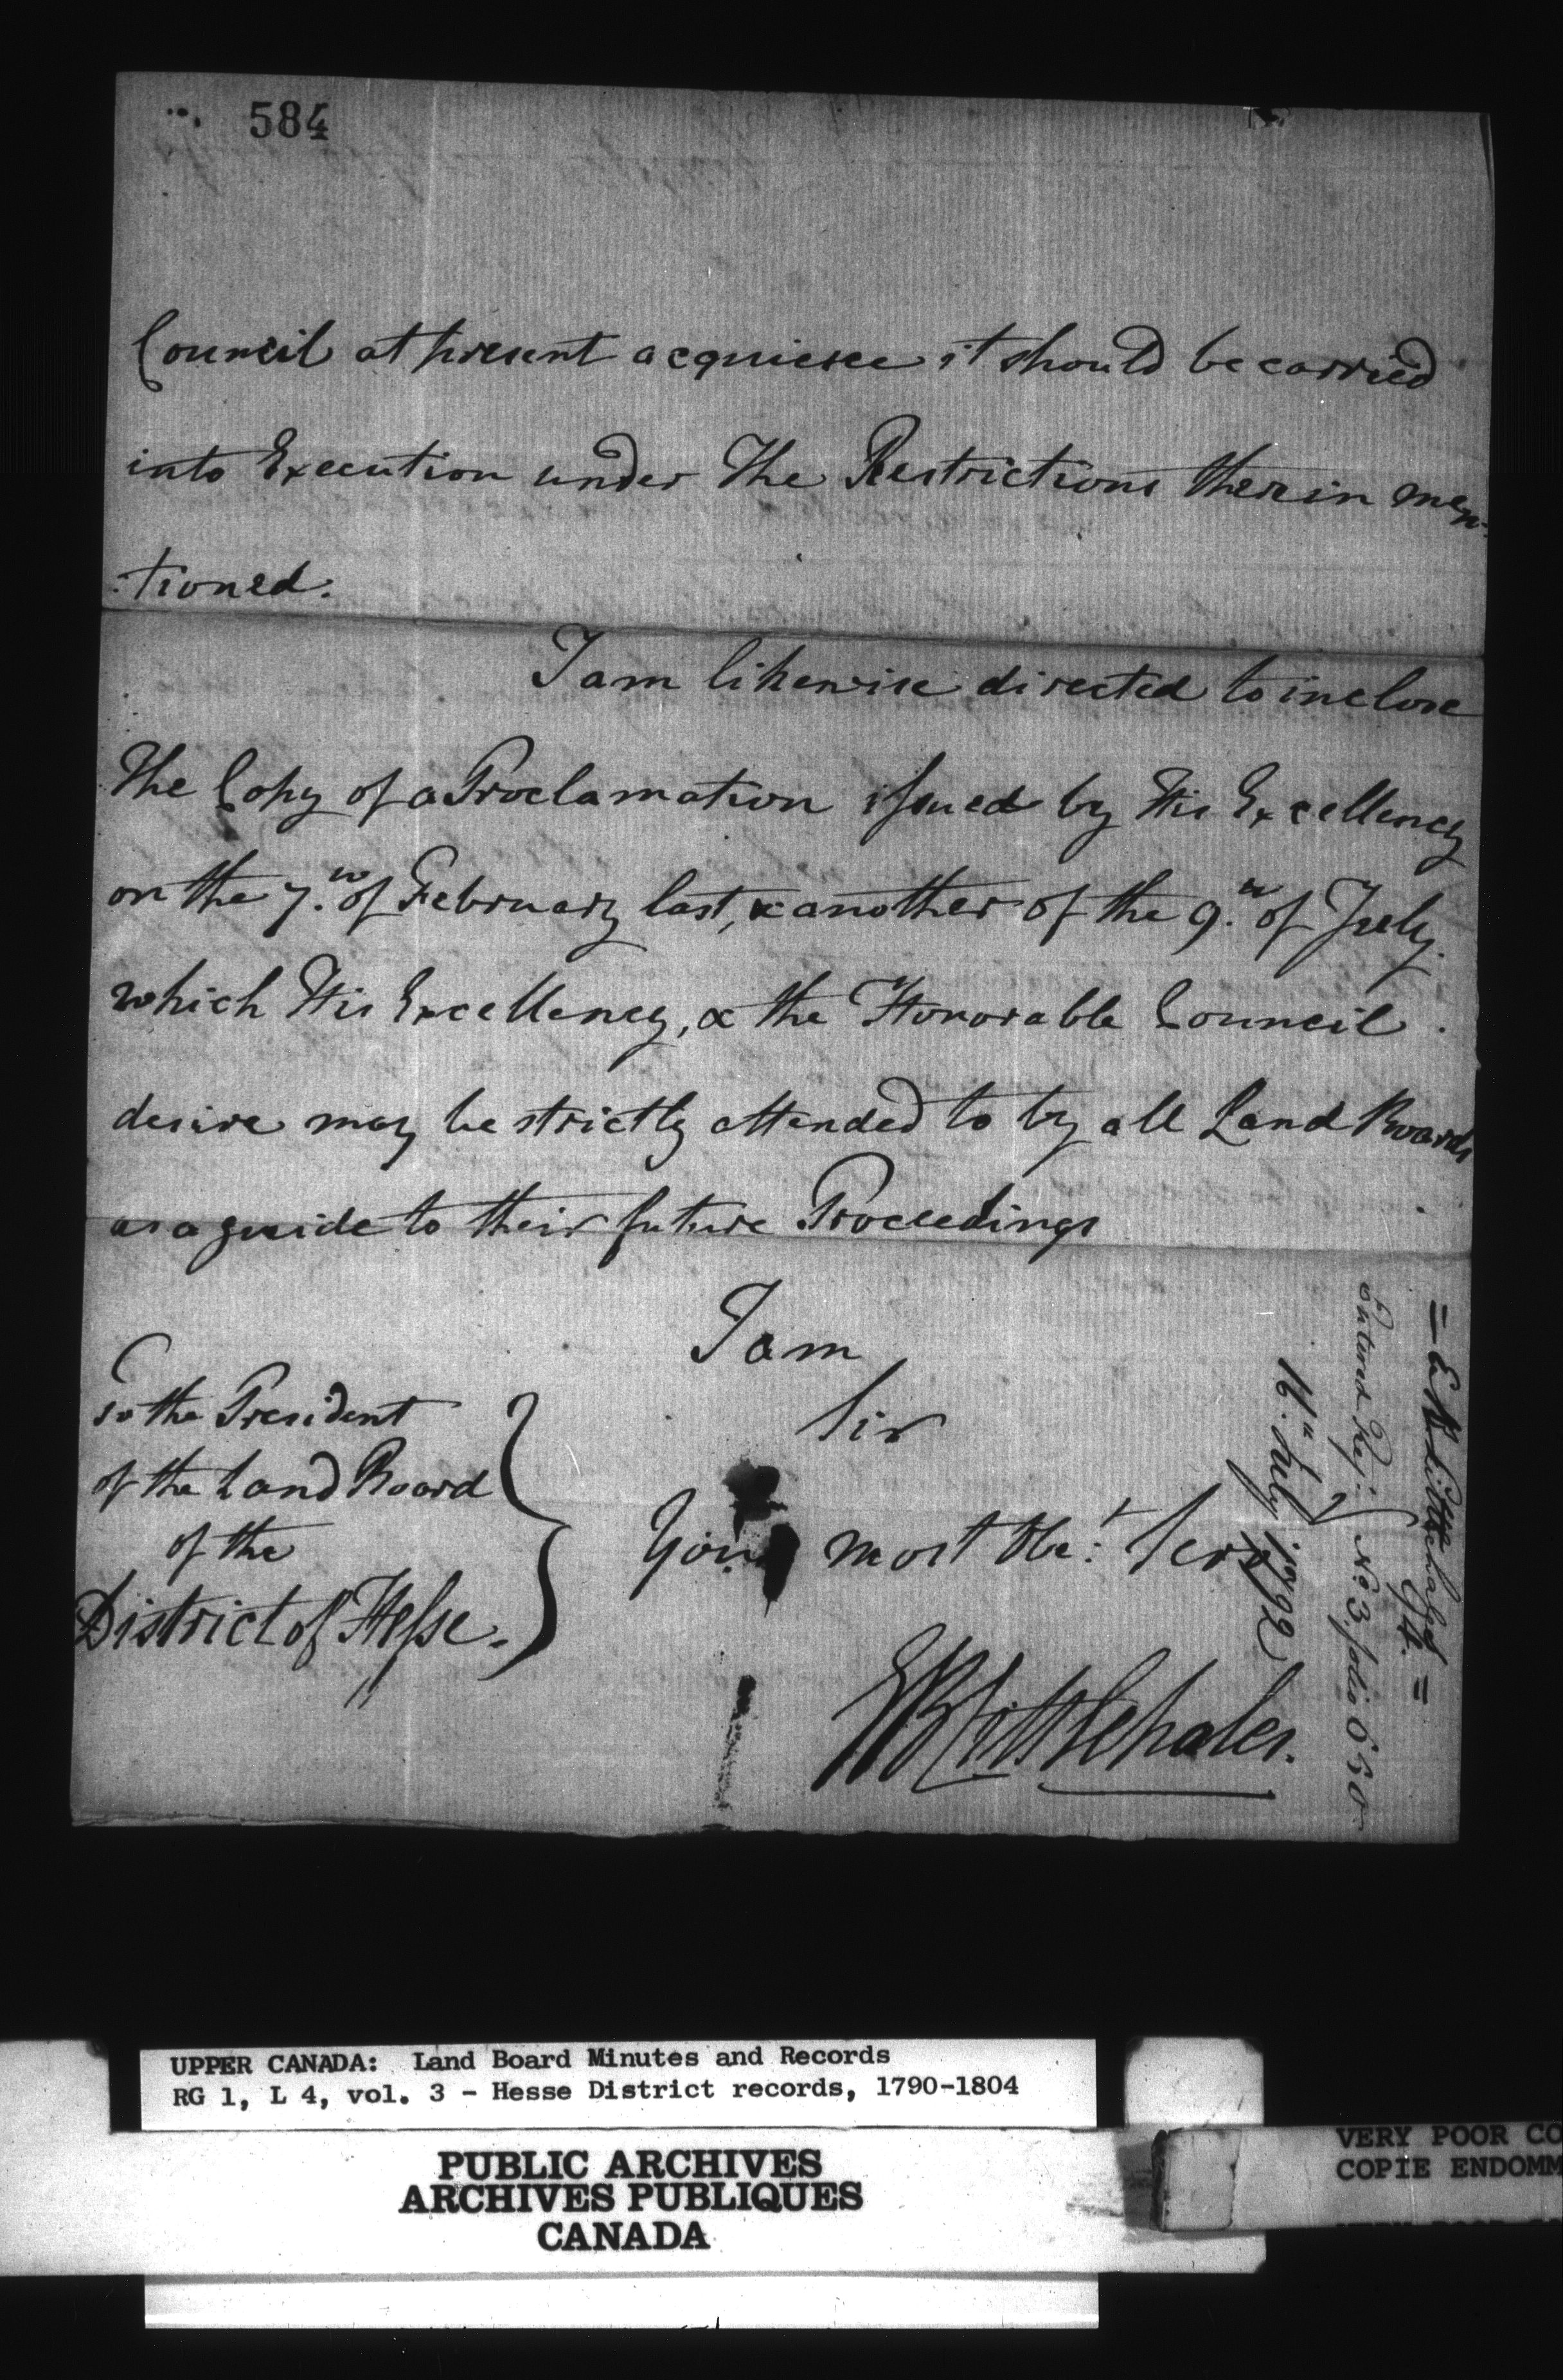 584
Council at present acquiesce it should be carried
into Execution under The Restrictions therein men-
:tioned.
I am likewise directed to inclose
The Copy of a Proclamation issued by His Excellency
on the 7.th of February last, & another of the 9.th of July.
which His Excellency, & the Honorable Council
desire may be strictly attended to by all Land Boards
as a guide to their future Proceedings
I am
Sir
Your most Obe:t Serv
EBLittlehales.
To the President
of the Land Board
of the
District of Hesse.
16.th July 1792
Entered Reg: No 3. folio
= EB Littlehales =
UPPER CANADA: Land Board Minutes and Records
RG 1, L 4, vol. 3 - Hesse District records, 1790-1804
PUBLIC ARCHIVES
ARCHIVES PUBLIQUES
CANADA
VERY POOR CO
COPIE ENDOMM